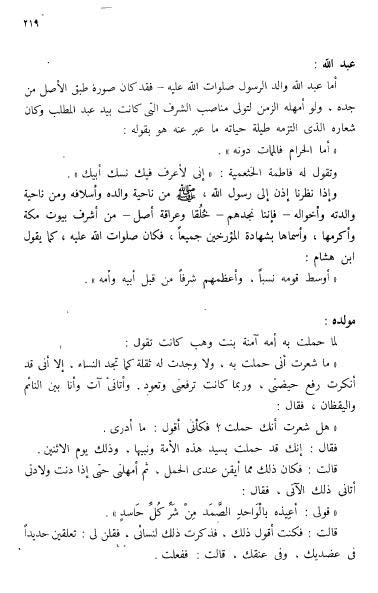 ٢١٩
عبد الله :
أما عبد الله والد الرسول صلوات الله عليه – فقد كان صورة طبق الأصل من
جده . ولو أمهله الزمن لتولى مناصب الشرف التى كانت بيد عبد المطلب وكان
شعاره الذى التزمه طيلة حياته ما عبر عنه هو بقوله :
« أما الحرام فالممات دونه » .
وتقول له فاطمة الخثعمية : « إنى لأعرف فيك نسك أبيك » .
وإذا نظرنا إذن إلى رسول الله ، ﷺ من ناحية والده وأسلافه ومن ناحية
والدته وأخواله – فإننا نجدهم – خُلُقا وعراقة أصل – من أشرف بيوت مكة
وأكرمها ، وأسماها بشهادة المؤرخين جميعاً ، فكان صلوات الله عليه ، كما يقول
ابن هشام :
« أوسط قومه نسباً ، وأعظمهم شرفاً من قبل أبيه وأمه » .
مولده :
لما حملت به أمه آمنة بنت وهب كانت تقول :
« ما شعرت أنى حملت به ، ولا وجدت له ثقلة كما تجد النساء . إلا أنى قد
أنكرت رفع حيضتى ، وربما كانت ترفعنى وتعود . وأتانى آت وأنا بين النائم
واليقظان ، فقال :
« هل شعرت أنك حملت ؟ فكأنى أقول : ما أدرى .
فقال : إنك قد حملت بسيد هذه الأمة ونبيها ، وذلك يوم الاثنين .
قالت : فكان ذلك مما أيقن عندى الحمل ، ثم أمهلنى حتى إذا دنت ولادتى
أتانى ذلك الآتى ، فقال :
« قولى : أعيذه بالْوَاحدِ الصَّمَد مِنْ شَرِّ كُلِّ حَاسدٍ » .
قالت : فكنت أقول ذلك ، فذكرت ذلك لنسائى ، فقلن لى : تعلقين حديداً
فى عضديك ، وفى عنقك ، قالت : ففعلت .